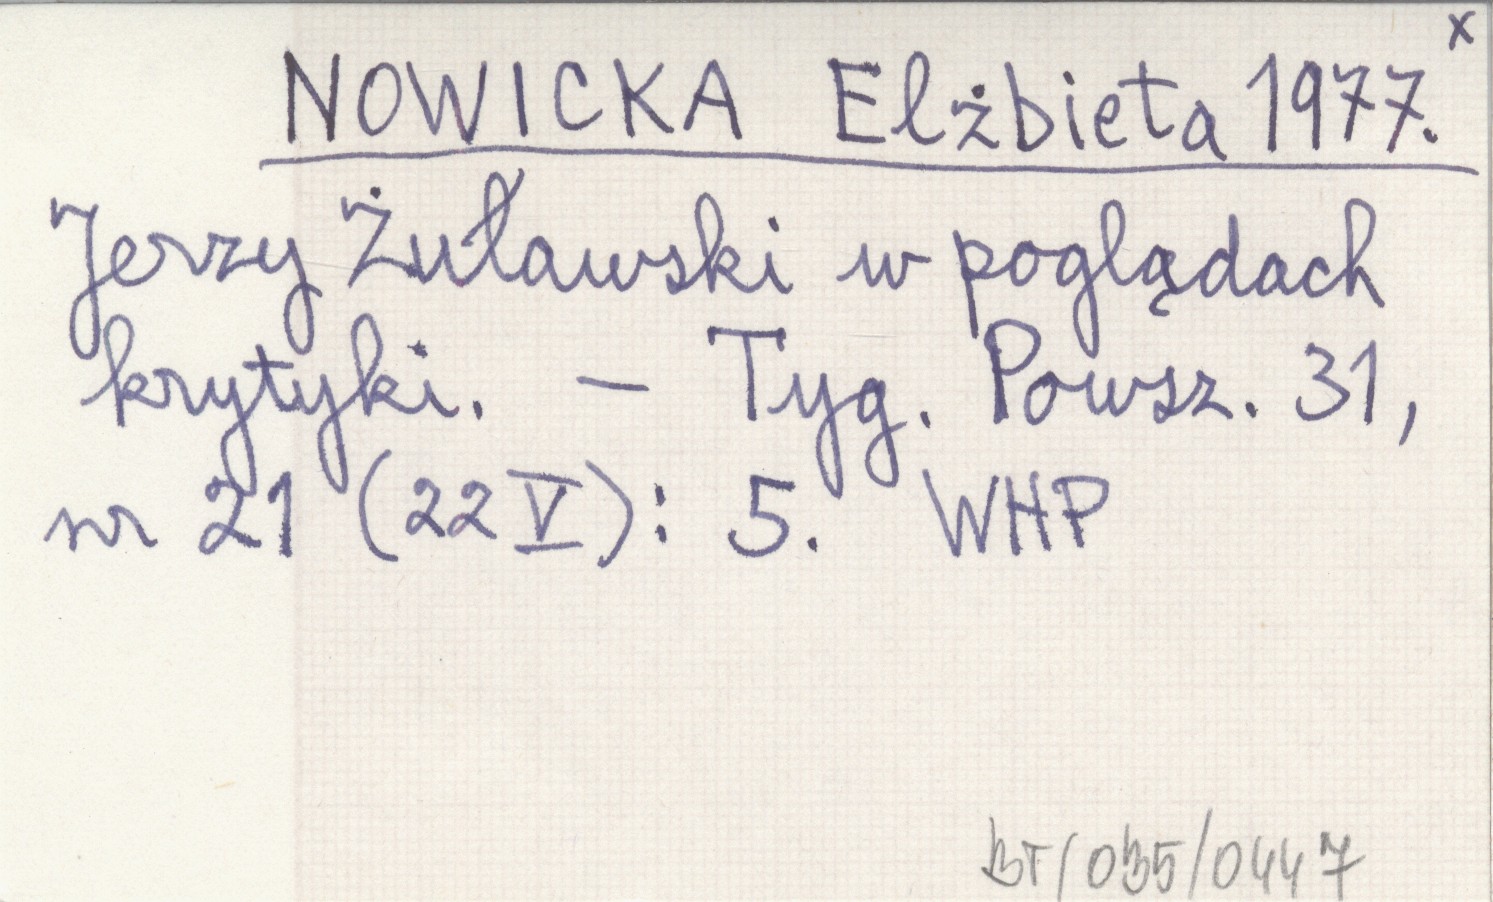 x
NOWICKA Elżbieta 1977.
Jerzy Żuławski w poglądach
krytyki. – Tyg. Powsz. 31,
nr 21 (22 V): 5. WHP
BT/035/0447